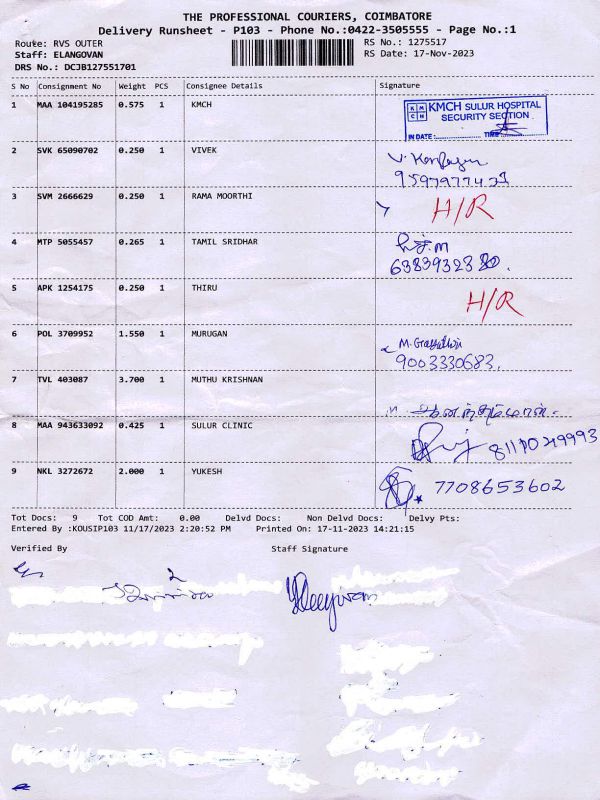 THE PROFESSIONAL COURIERS, COIMBATORE
Delivery Runsheet - P103 - Phone No.:0422-3505555 - Page No.:1
Route: RVS OUTER RS No.: 1275517
Staff: ELANGOVAN RS Date: 17-Nov-2023
DRS No.: DCJB127551701
S No Consignment No Weight PCS Consignee Details Signature
1 MAA 104195285 0.575 1 KMCH
KMCH SULUR HOSPITAL
SECURITY SECTION
IN DATE: TIME:
2 SVK 65090702 0.250 1 VIVEK
3 SVM 2666629 0.250 1 RAMA MOORTHI H/R
4 MTP 5055457 0.265 1 TAMIL SRIDHAR
5 APK 1254175 0.250 1 THIRU H/R
6 POL 3709952 1.550 1 MURUGAN
9003330683.
7 TVL 403087 3.700 1 MUTHU KRISHNAN
8 MAA 943633092 0.425 1 SULUR CLINIC
9 NKL 3272672 2.000 1 YUKESH 7708653602
Tot Docs: 9 Tot COD Amt: 0.00 Delvd Docs: Non Delvd Docs: Delvy Pts:
Entered By :KOUSIP103 11/17/2023 2:20:52 PM Printed On: 17-11-2023 14:21:15
Verified By Staff Signature